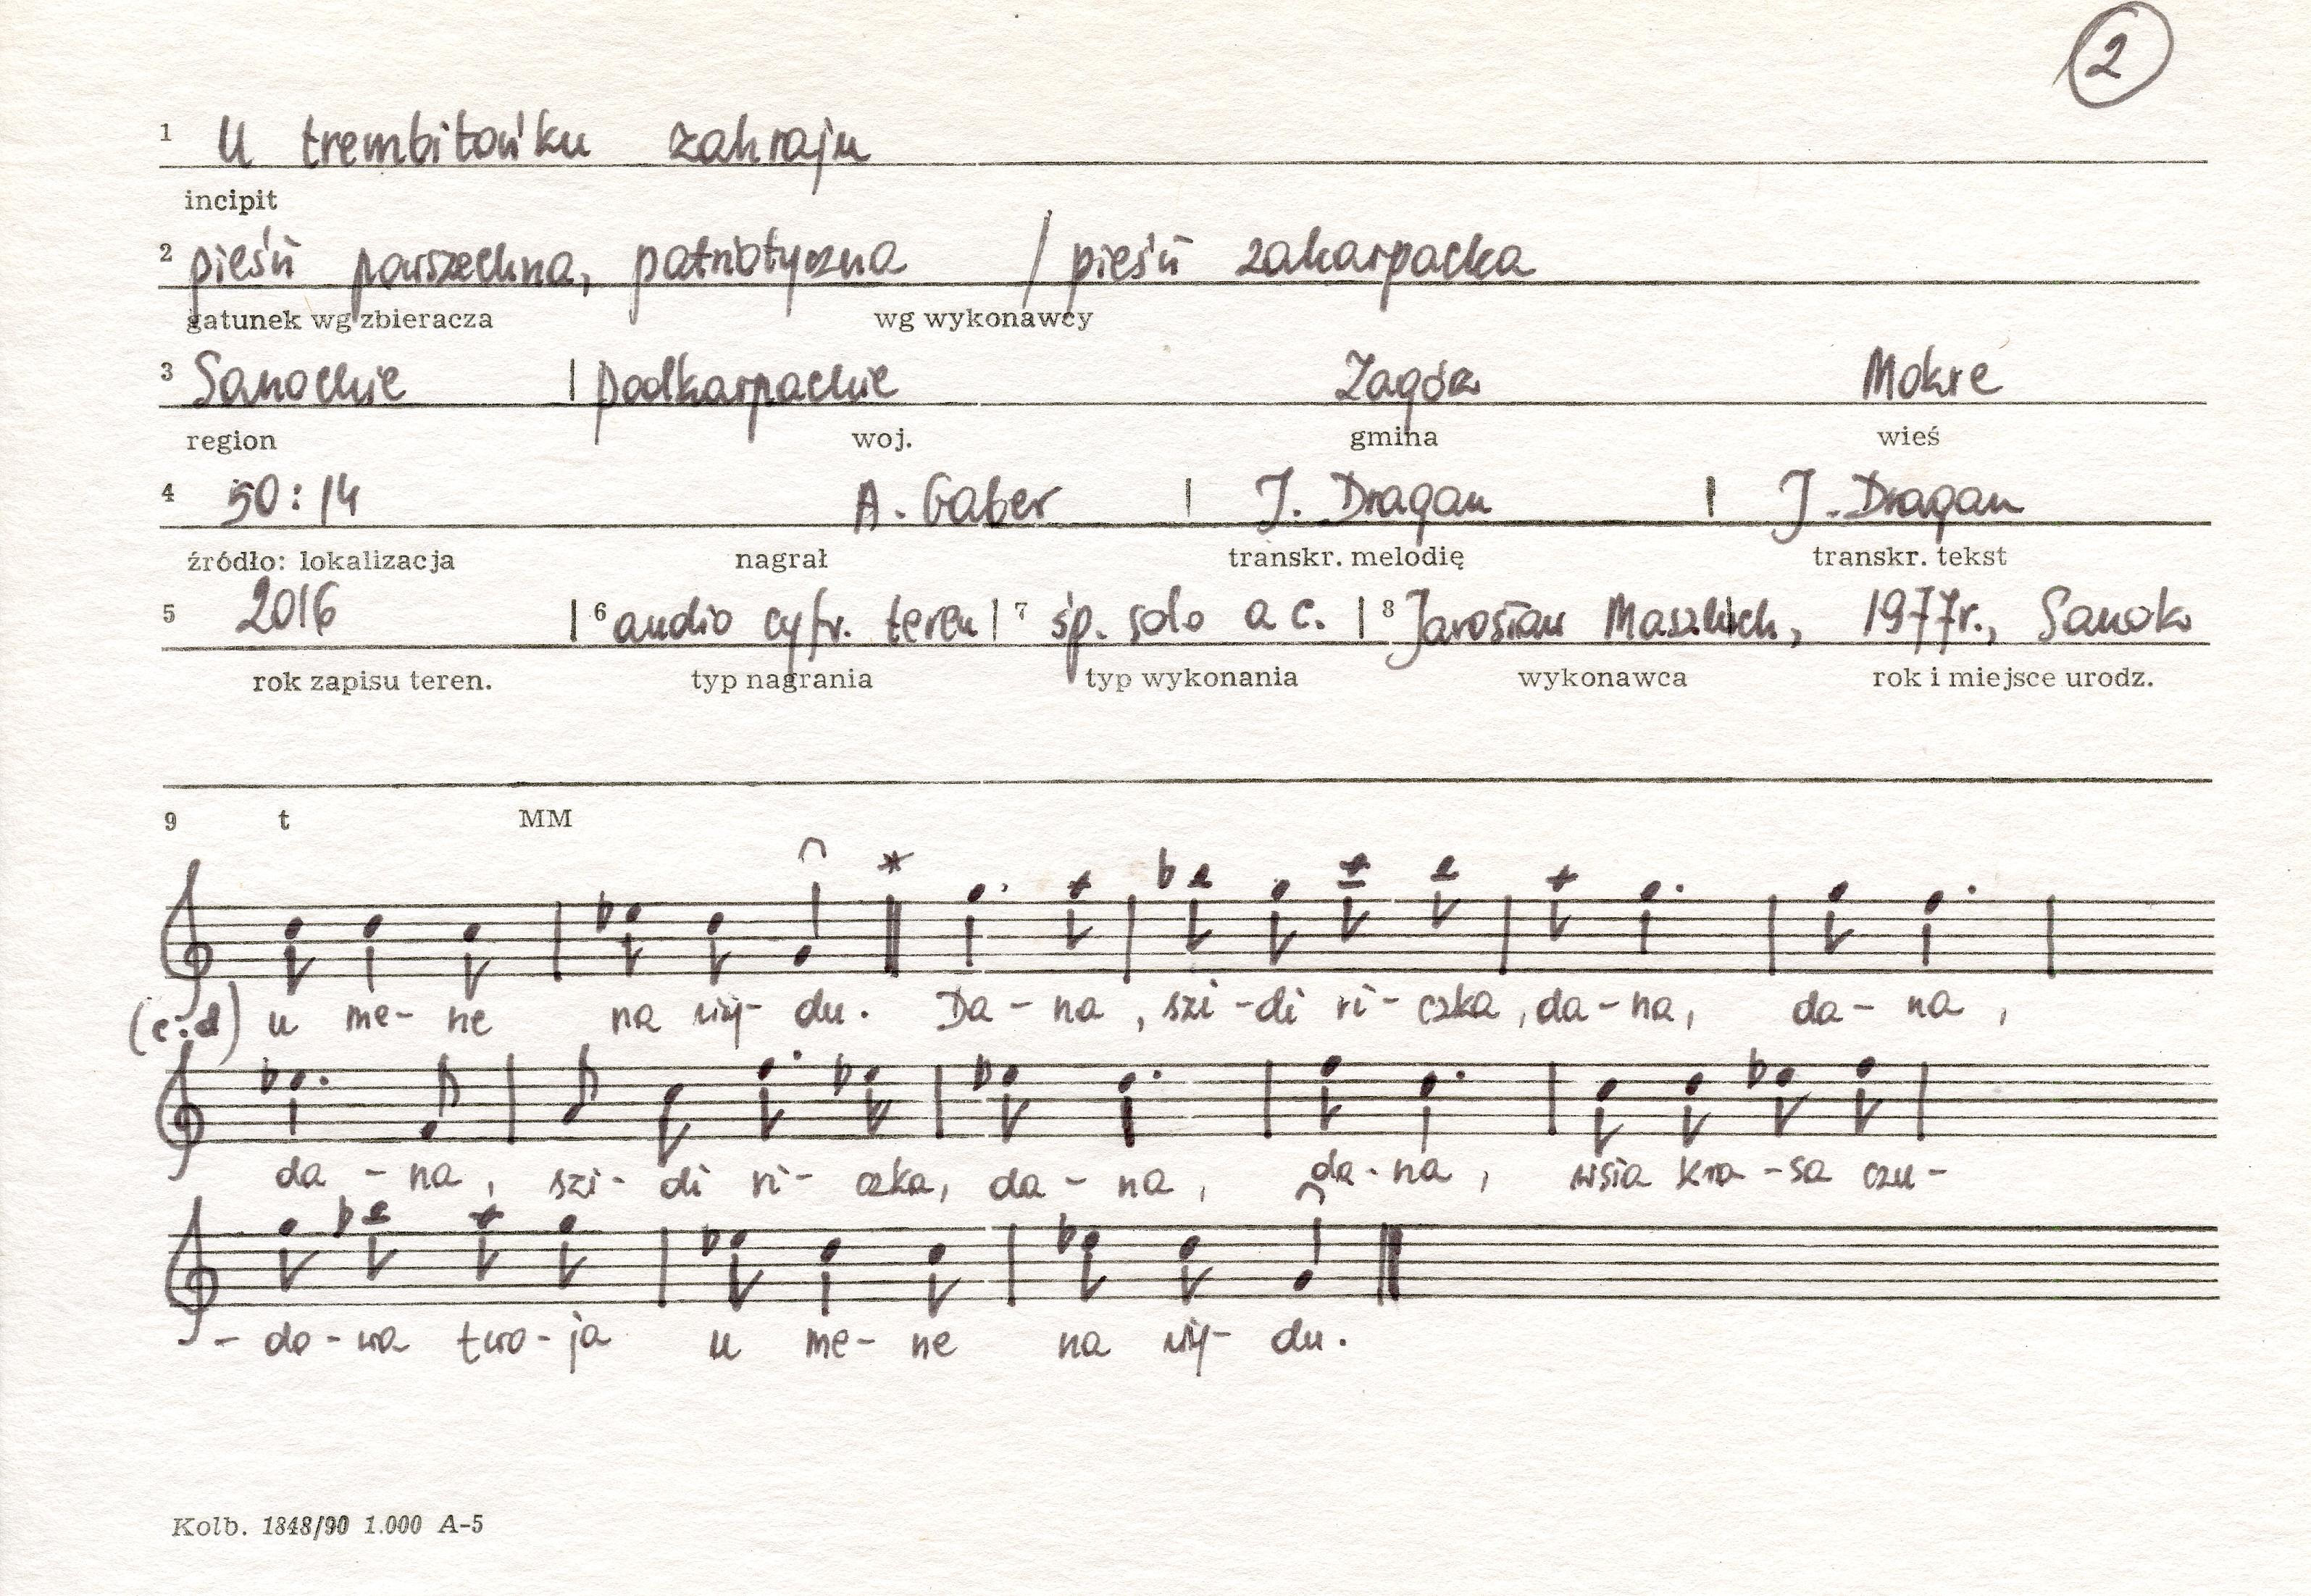 2
1 U trembitońku zahraju
incipit
2 pieśń powszechna, patriotyczna / pieśń zakarpacka
gatunek wg zbieracza wg wykonawcy
3 Sanockie | podkarpackie Zagórz Mokre
region woj. gmina wieś
4 50:14 A. Gaber | J. Dragan | J. Dragan
źródło: lokalizacja nagrał transkr. melodię transkr. tekst
5 2016 | 6 audio cyfr. teren | 7 śp. solo a c. | 8 Jarosław 1977r., Sanok
rok zapisu teren. typ nagrania typ wykonania wykonawca rok i miejsce urodz.
9 t MM
*
(c.d) u me- ne na wy- du. Da - na, szi - di ri - czka, da - na, da - na,
da - na, szi - di ri - czka, da - na, da - na, wsia kra - sa czu -
- do - wa two - ja u me - ne na wy - du.
Kolb. 1848/90 1.000 A-5